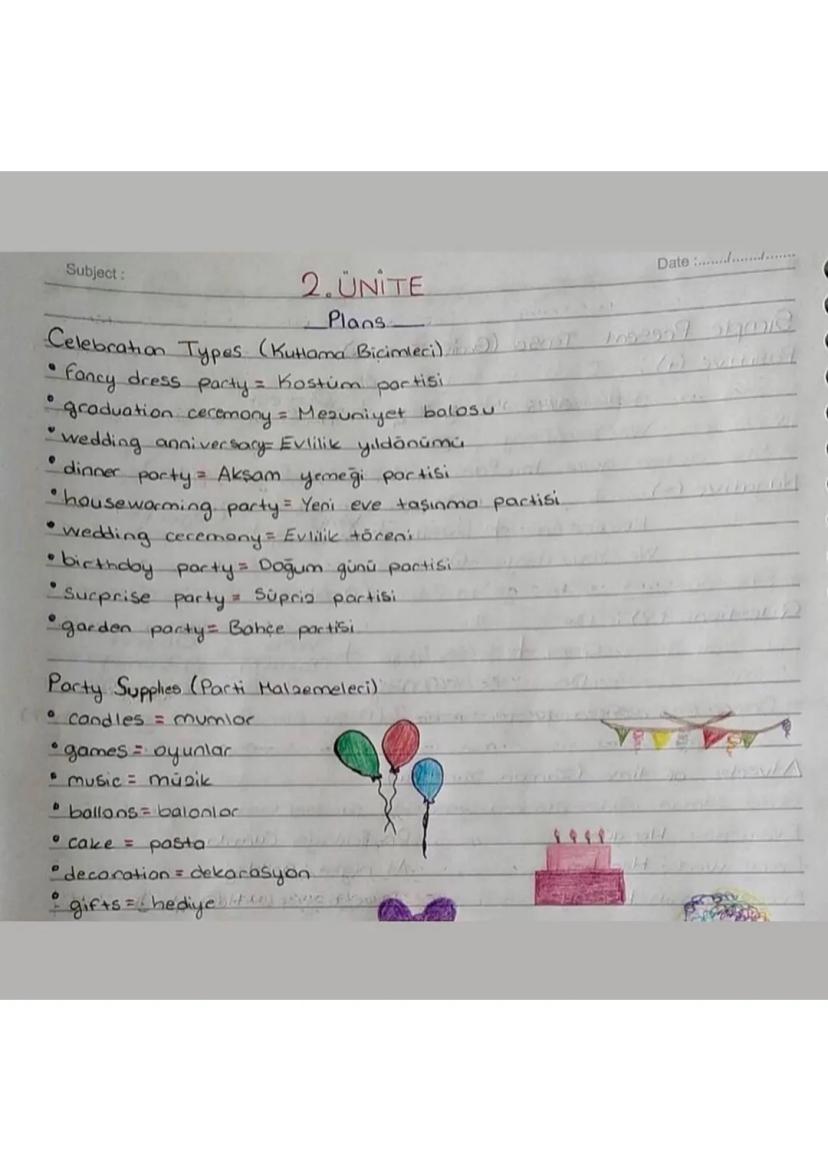 Subject :
Date :......./......./.......
2. ÜNİTE
Plans
Celebration Types (Kutlama Biçimleri)
• fancy dress party = Kostüm partisi
• graduation ceremony = Mezuniyet balosu
• wedding anniversary= Evlilik yıldönümü
• dinner party = Akşam yemeği partisi
• housewarming party = Yeni eve taşınma partisi
• wedding ceremony = Evlilik töreni
• birthday party = Doğum günü partisi
• Surprise party = Süpriz partisi
• garden party = Bahçe partisi
Party Supplies (Parti Malzemeleri)
• candles = mumlar
• games = oyunlar
• music = müzik
• ballons = balonlar
• cake = pasta
• decoration = dekorasyon
• gifts = hediye